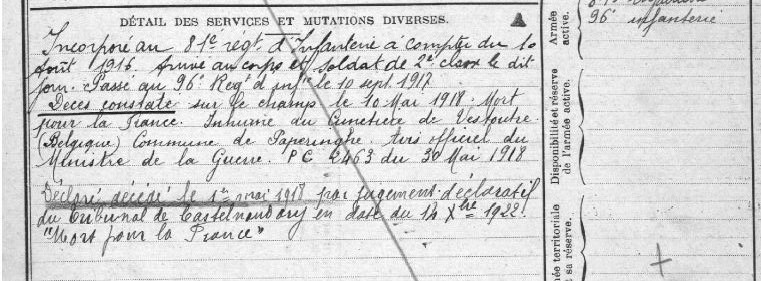 DÉTAIL DES SERVICES ET MUTATIONS DIVERSES.
A
Incorporé au 81e régt d'Infanterie à compter du 10
Août 1916. Arrivé au corps et soldat de 2e classe le dit
jour. Passé au 96e Regt d'infie le 10 sept. 1917
Décès constaté sur le champ le 10 Mai 1918. Mort
pour la France. Inhumé du Cimetière de Vestoutre
(Belgique) Commune de Paperinghe. Avis officiel du
Ministre de la Guerre. PC 2463 du 30 Mai 1918
Déclaré décédé le 1er mai 1918 par jugement déclaratif
du Tribunal de Castelnaudary en date du 14 Xbre 1922.
"Mort pour la France"
Armée
active.
96e infanterie
Disponibilité et réserve
de l'armée active.
ée territoriale
t sa réserve.